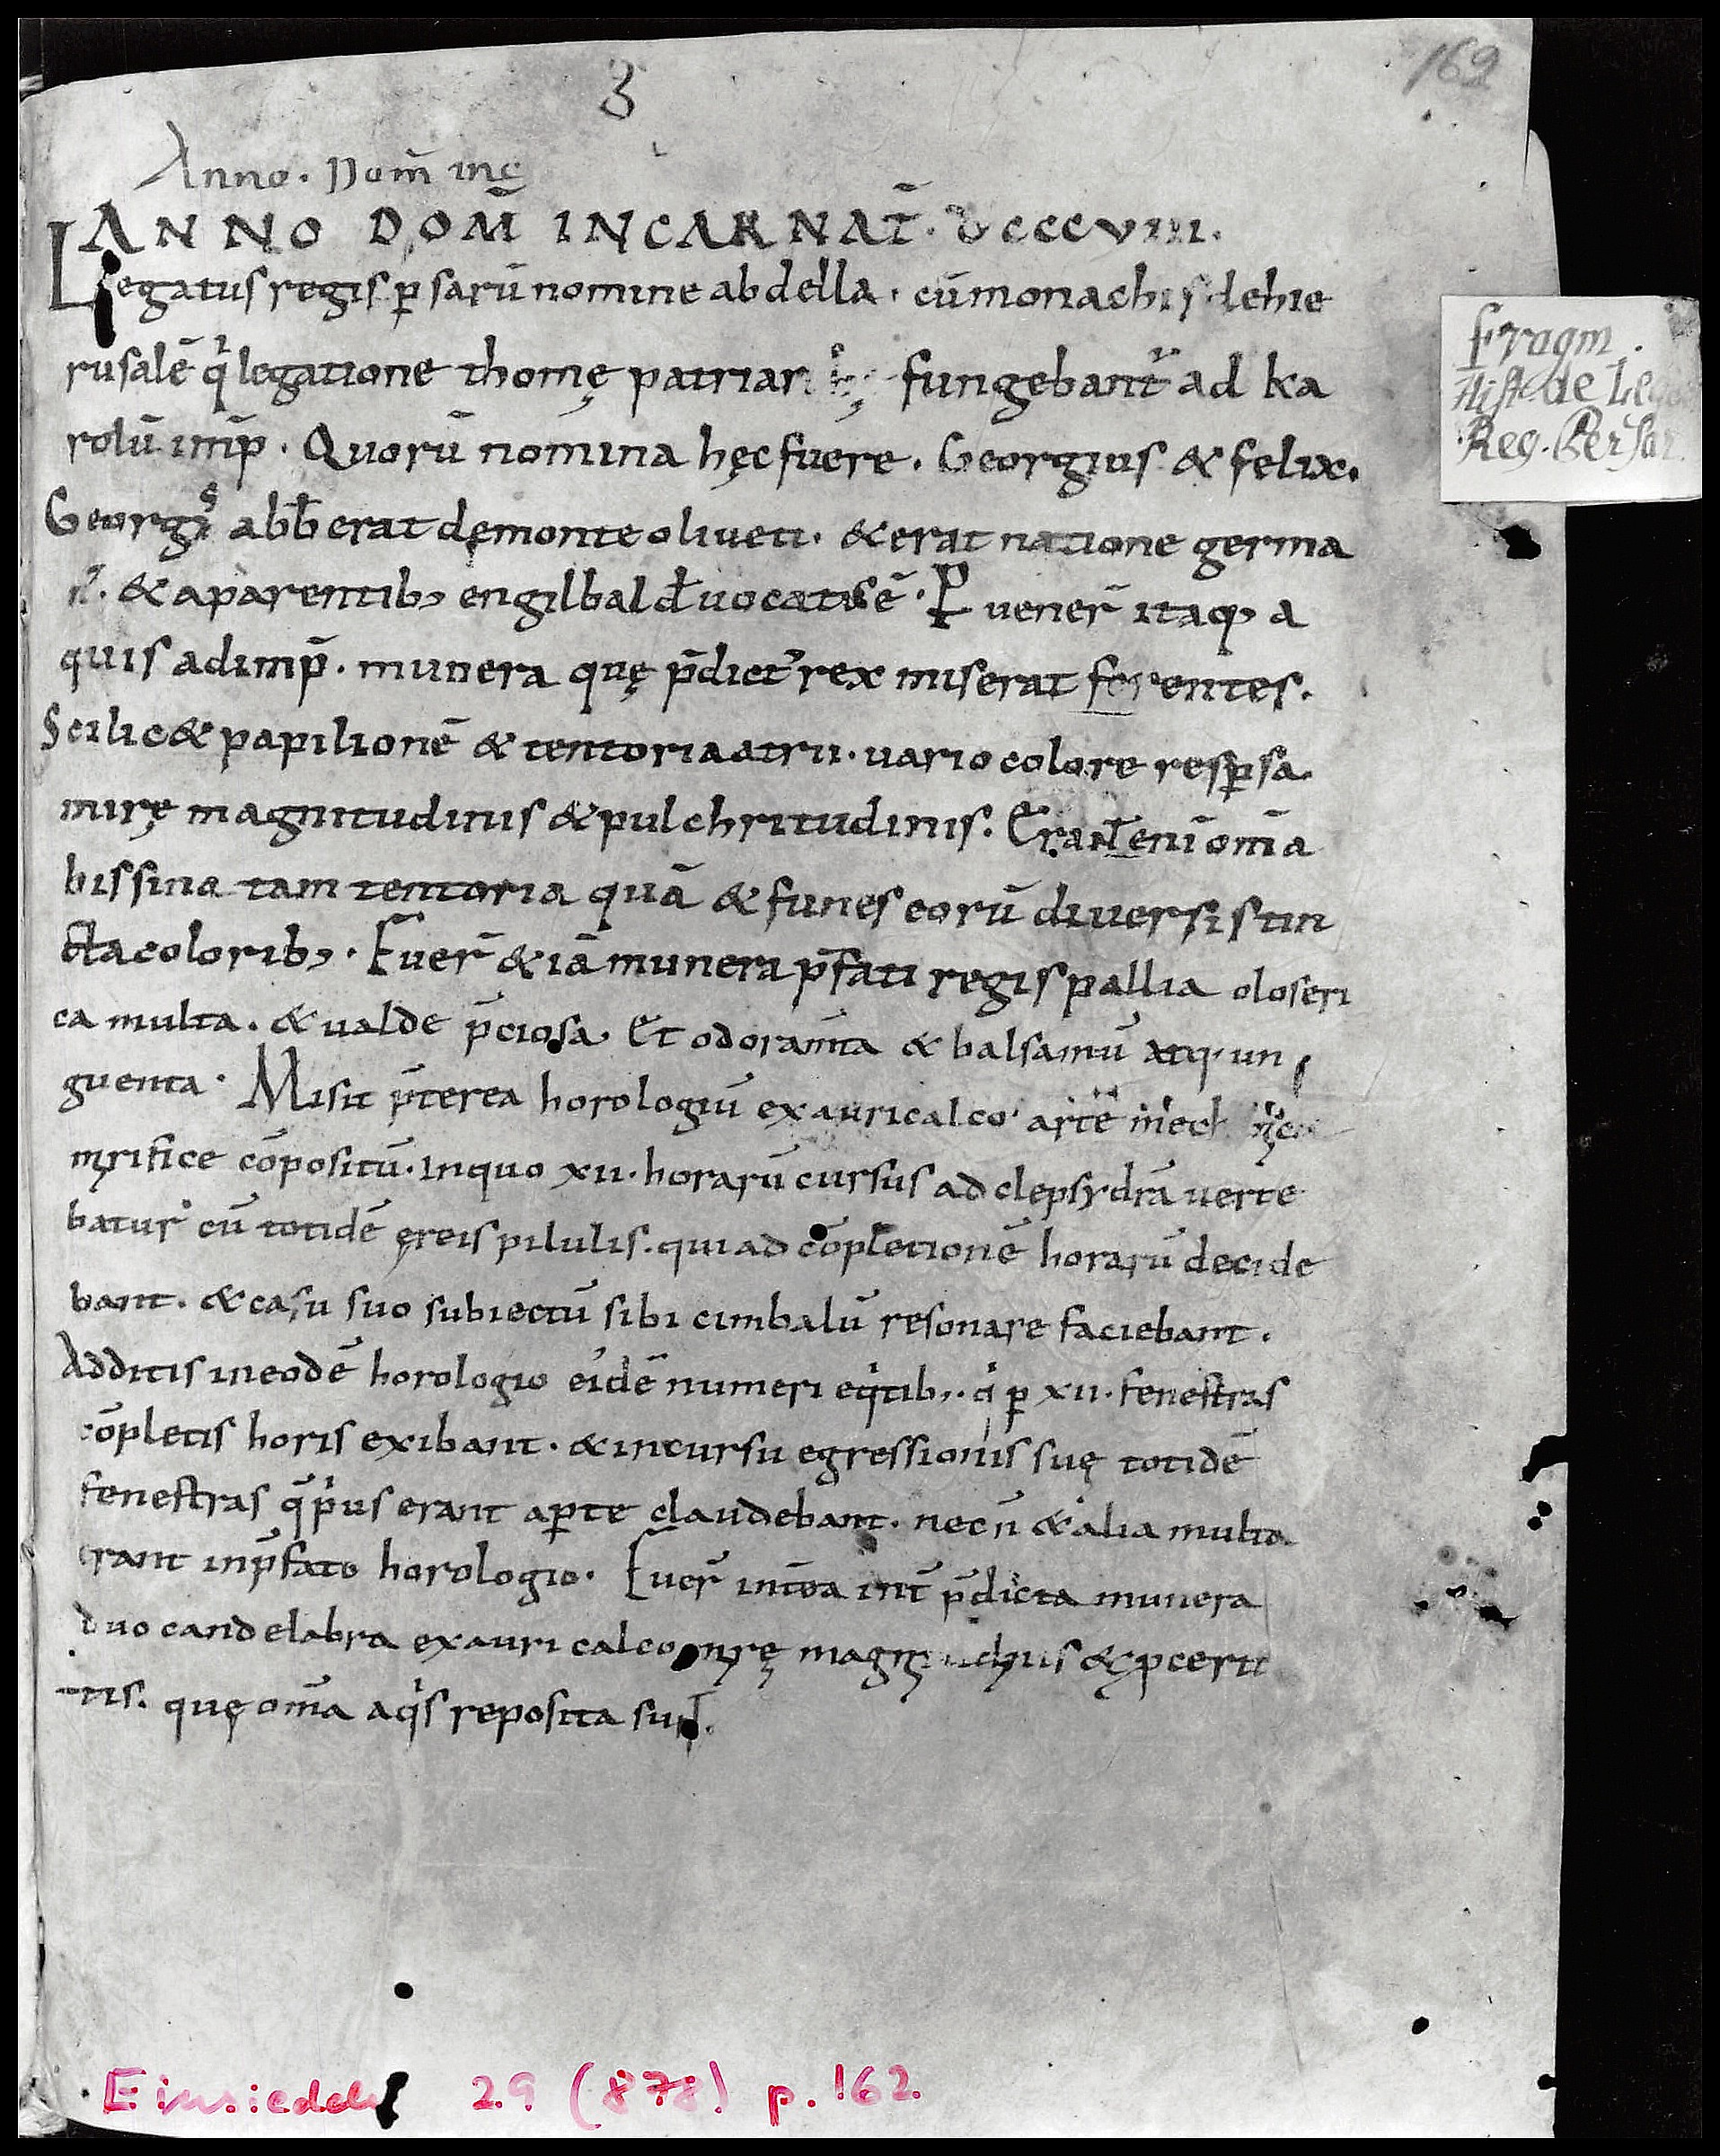 3
162
Anno. Dom̄ inc
ANNO DOM̄ INCARNAT̄. DCCCVIII.
Legatus regis p̱sarū nomine abdella. cū monachis dehie
rusalē qͥ legatione thomę patriar fungebant᷑ ad ka
rolū imp̄. Quorū nomina hęc fuere. Georgius & felix.
Georgiꝰ abb̄ erat demonte oliueti. & erat natione germa
nꝰ. & aparentib; engilbald̄ uocatus ē. P̱uener̄ itaq; a
quis adimp̄. munera quę p̄dict᷑ rex miserat ferentes.
Scilic& papilionē & tentoria atrii. uario colore resp̱sa.
mirę magnitudinis & pulchritudinis. Erant eni om̄ia
bissina tam tentoria quā & funes eorū diuersis tin
cta colorib;. Fuer̄ & iā munera p̄fati regis pallia oloseri
ca multa. & ualde p̄ciosa. Et odoram̄ta & balsamū atq; un
guenta. Misit p̄terea horologiū ex auricalco arte
mirifice cōpositū. in quo xii. horarū cursus ad clepsydrā uerte
batur cū totidē ęreis pilulis. qui ad cōpletionē horarū decide
bant. & casu suo subiectū sibi cimbalū resonare faciebant.
Additis in eodē horologio eidē numeri eqͥtib;. qͥ p̱ xii. fenestras
cōpletis horis exibant. & incursu egressionis suę totidē
fenestras q̄ pͥus erant ap̱te claudebant. necn̄ & alia multa
erant in p̄fato horologio. Fuer̄ int̄ea int̄ p̄dicta munera
duo candelabra ex auricalco mirę & ꝓceri
tatis. quę om̄a aqͥs reposita sunt.
Fragm.
Hist. de Leg
Reg. Persar.
Einsiedeln 29 (878) p. 162.